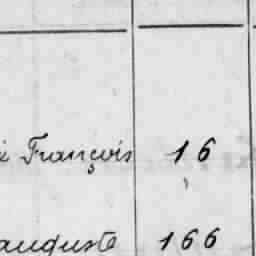 François 16
auguste 166